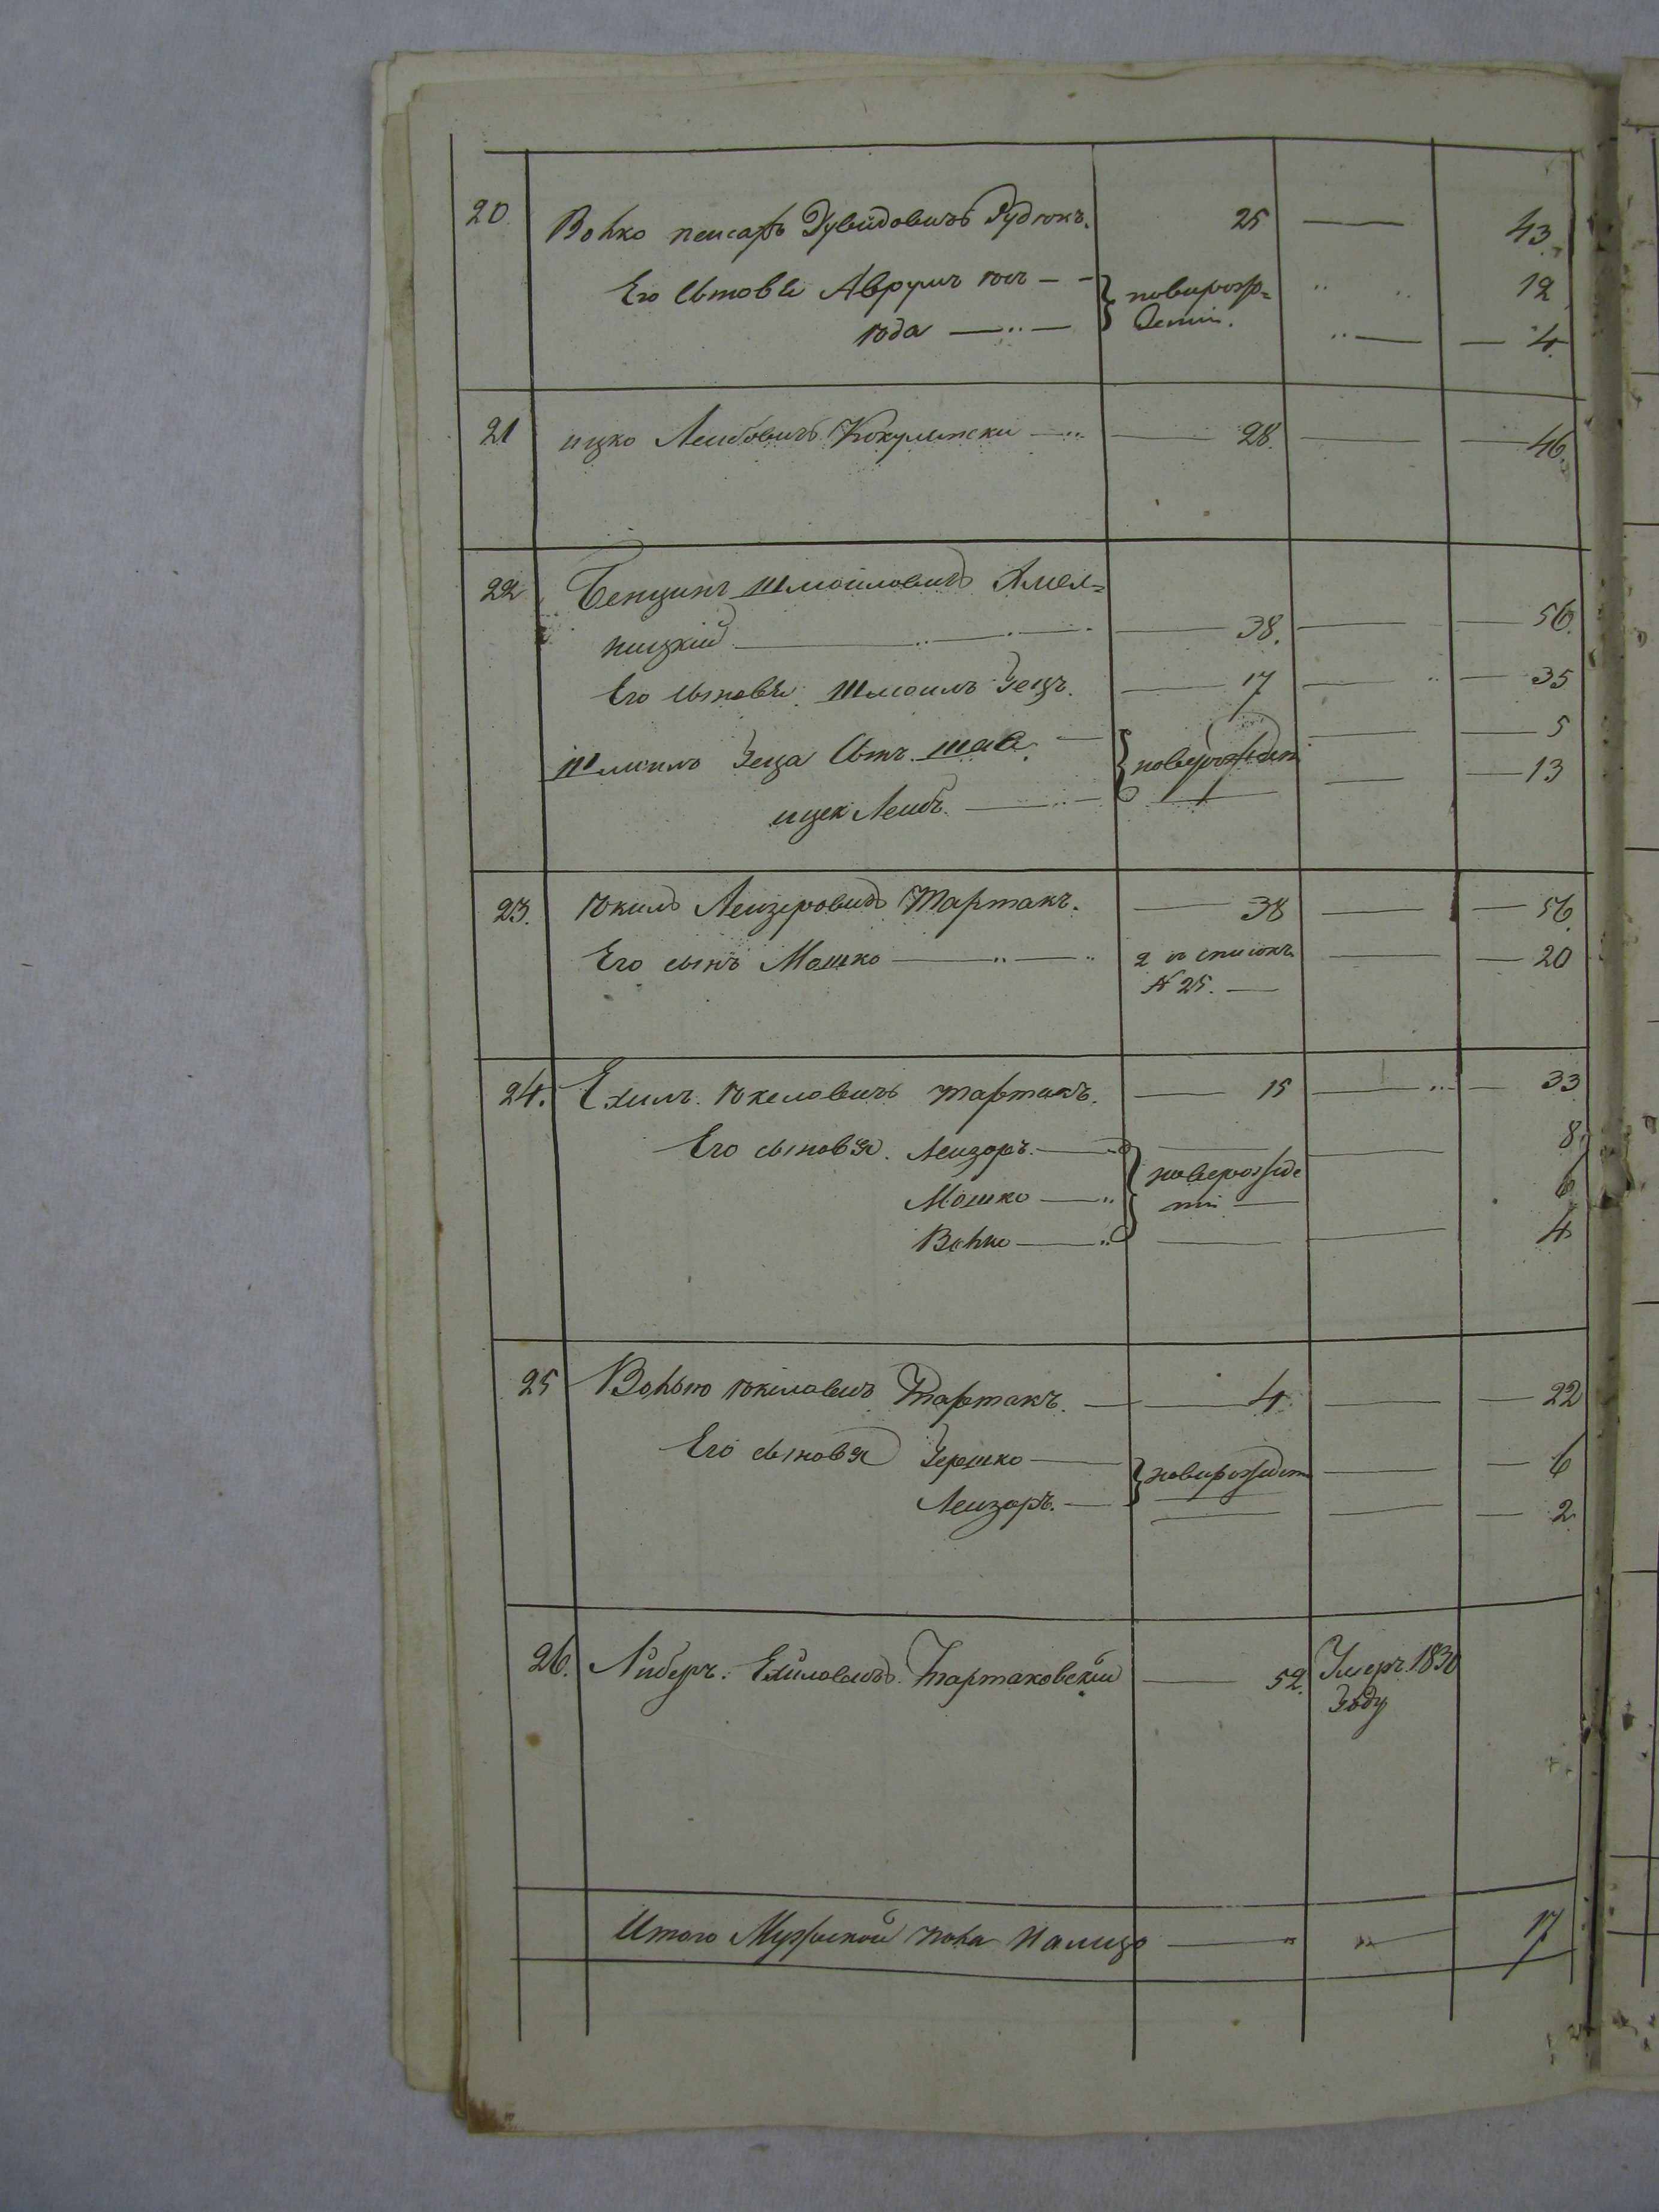 20. Волко пейсахъ Дувидовичъ Рудюкъ. 25 — 43.
Его сыновья Аврумъ юсь — новорож= 12
юда — дении. — 4.
21 ицко Леибовичъ Кокулински — 28. — 46.
22 Бенцинъ Шмоиловичъ Хмел=
ницкий — 38. — 56.
Его сыновья. Шмоилъ Зецъ. — 17 — 35
Шмоилъ Зеца сынъ шая — новорожден — 5
ицек Леибъ — 13
23. юкилъ Леизеровичъ Тартакъ. — 38 — 56.
Его сынъ Мошко — 2 в списокъ — 20
N 25. —
24. Ехилъ юкеловичъ тартакъ. — 15 — 33
Его сыновья. Леизоръ. — 8.
новорожде
Мошко — нии — 6
Волко — 4
25 Волько юкиловичъ Тартакъ. — 4. — 22
Его сыновья Гершко — новорожден — 6
Леизоръ. — 2
26. Либеръ. Ехиловичъ. Тартаковский — 52. Умеръ. 1830
году
Итого Мужской пола налицо — " " — 17